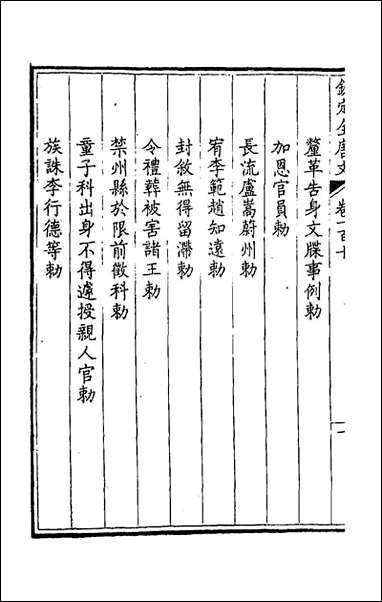 欽定全唐文 卷一百十
釐革告身文牒事例勅
加恩官員勅
長流盧嵩蔚州勅
宥李範趙知遠勅
封敘無得留滯勅
令禮葬被害諸王勅
禁州縣於限前徵科勅
童子科出身不得遽授親人官勅
族誅李行德等勅